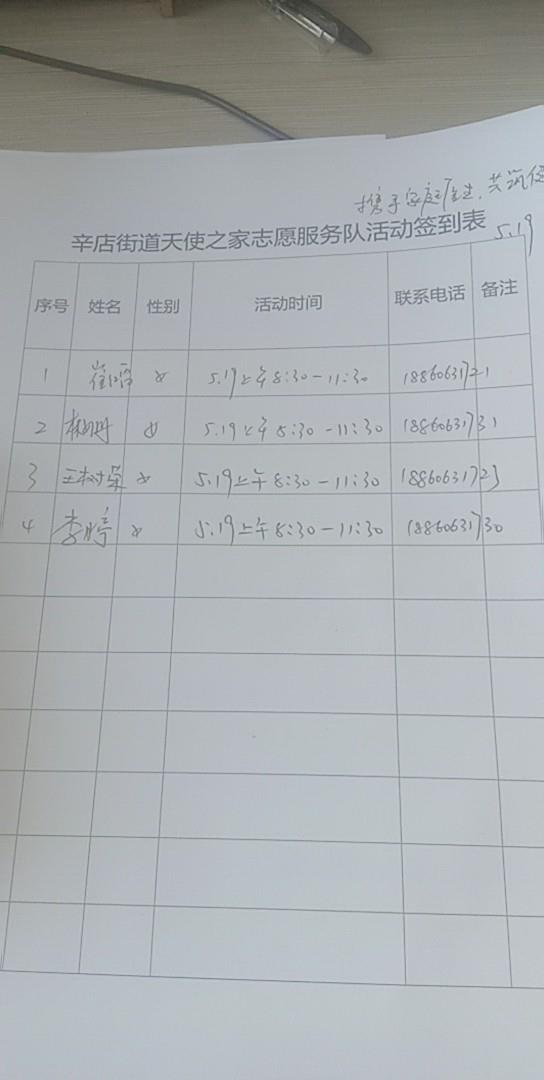 携手家庭医生，共筑健
辛店街道天使之家志愿服务队活动签到表
5.19
序号 姓名 性别 活动时间 联系电话 备注
1 崔 女 5.19上午8:30-11:30 18860631721
2 女 5.19上午8:30-11:30 18860631731
3 王树荣 女 5.19上午8:30-11:30 18860631723
4 李婷 女 5.19上午8:30-11:30 18860631730